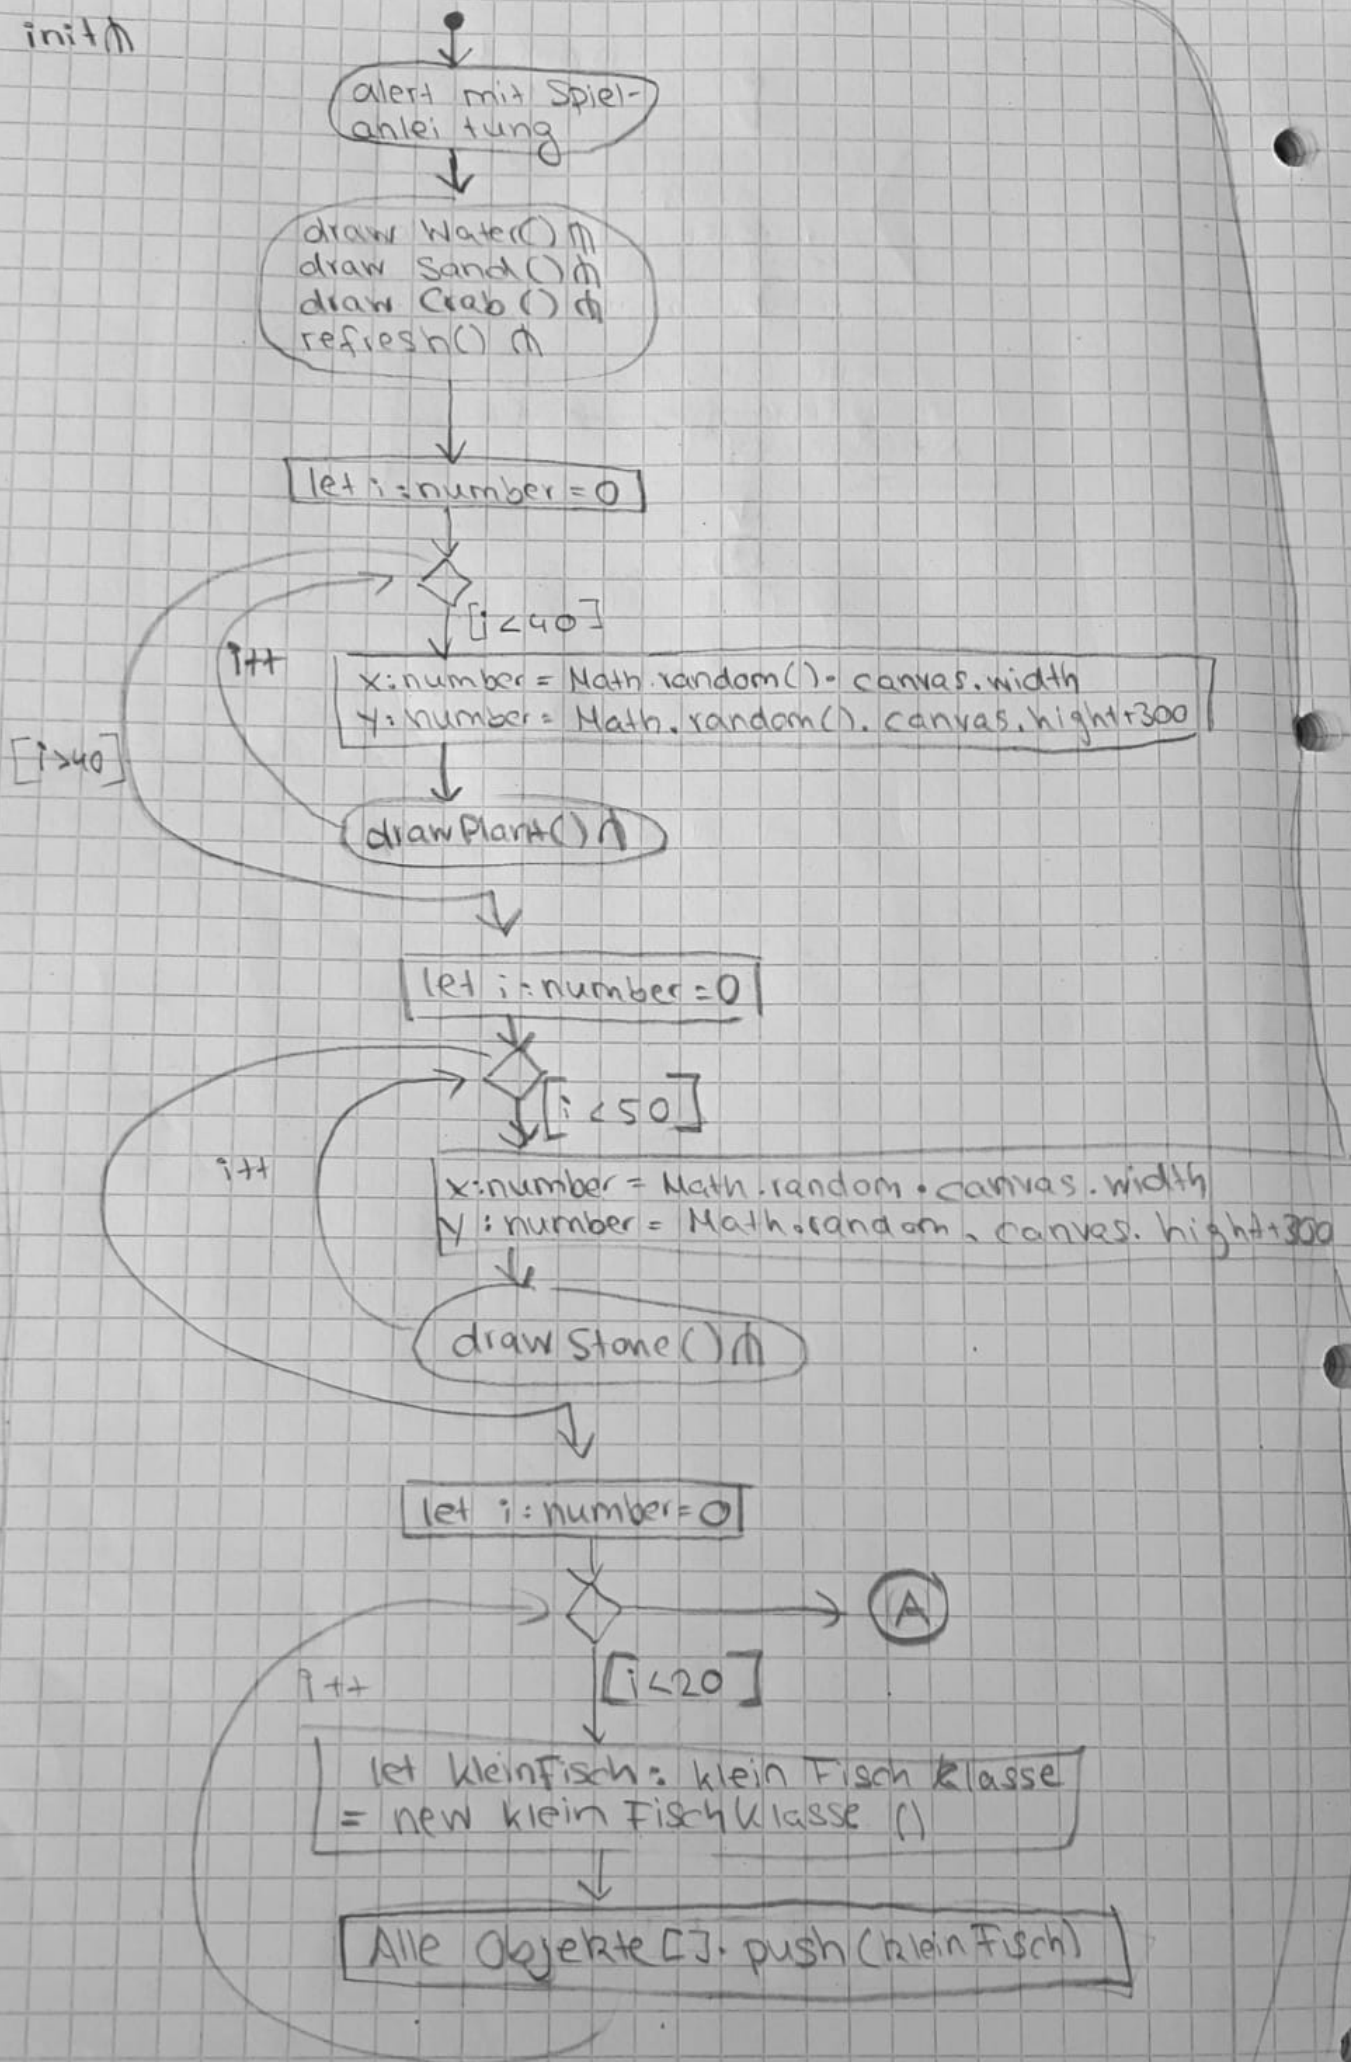 init
alert mit Spiel-
anleitung
draw Water()
draw Sand()
draw Crab()
refresh()
let i:number=0
[i<40]
i++
x:number = Math.random()· canvas.width
y:number = Math.random(). canvas.hight+300
[i>40]
drawPlant()
let i:number=0
[i<50]
i++
x:number = Math.random · canvas.width
y:number = Math.random . canvas.hight+300
drawStone()
let i:number=0
A
[i<20]
i++
let kleinFisch: klein Fisch klasse
= new klein Fisch Klasse ()
Alle Objekte[].push(kleinFisch)